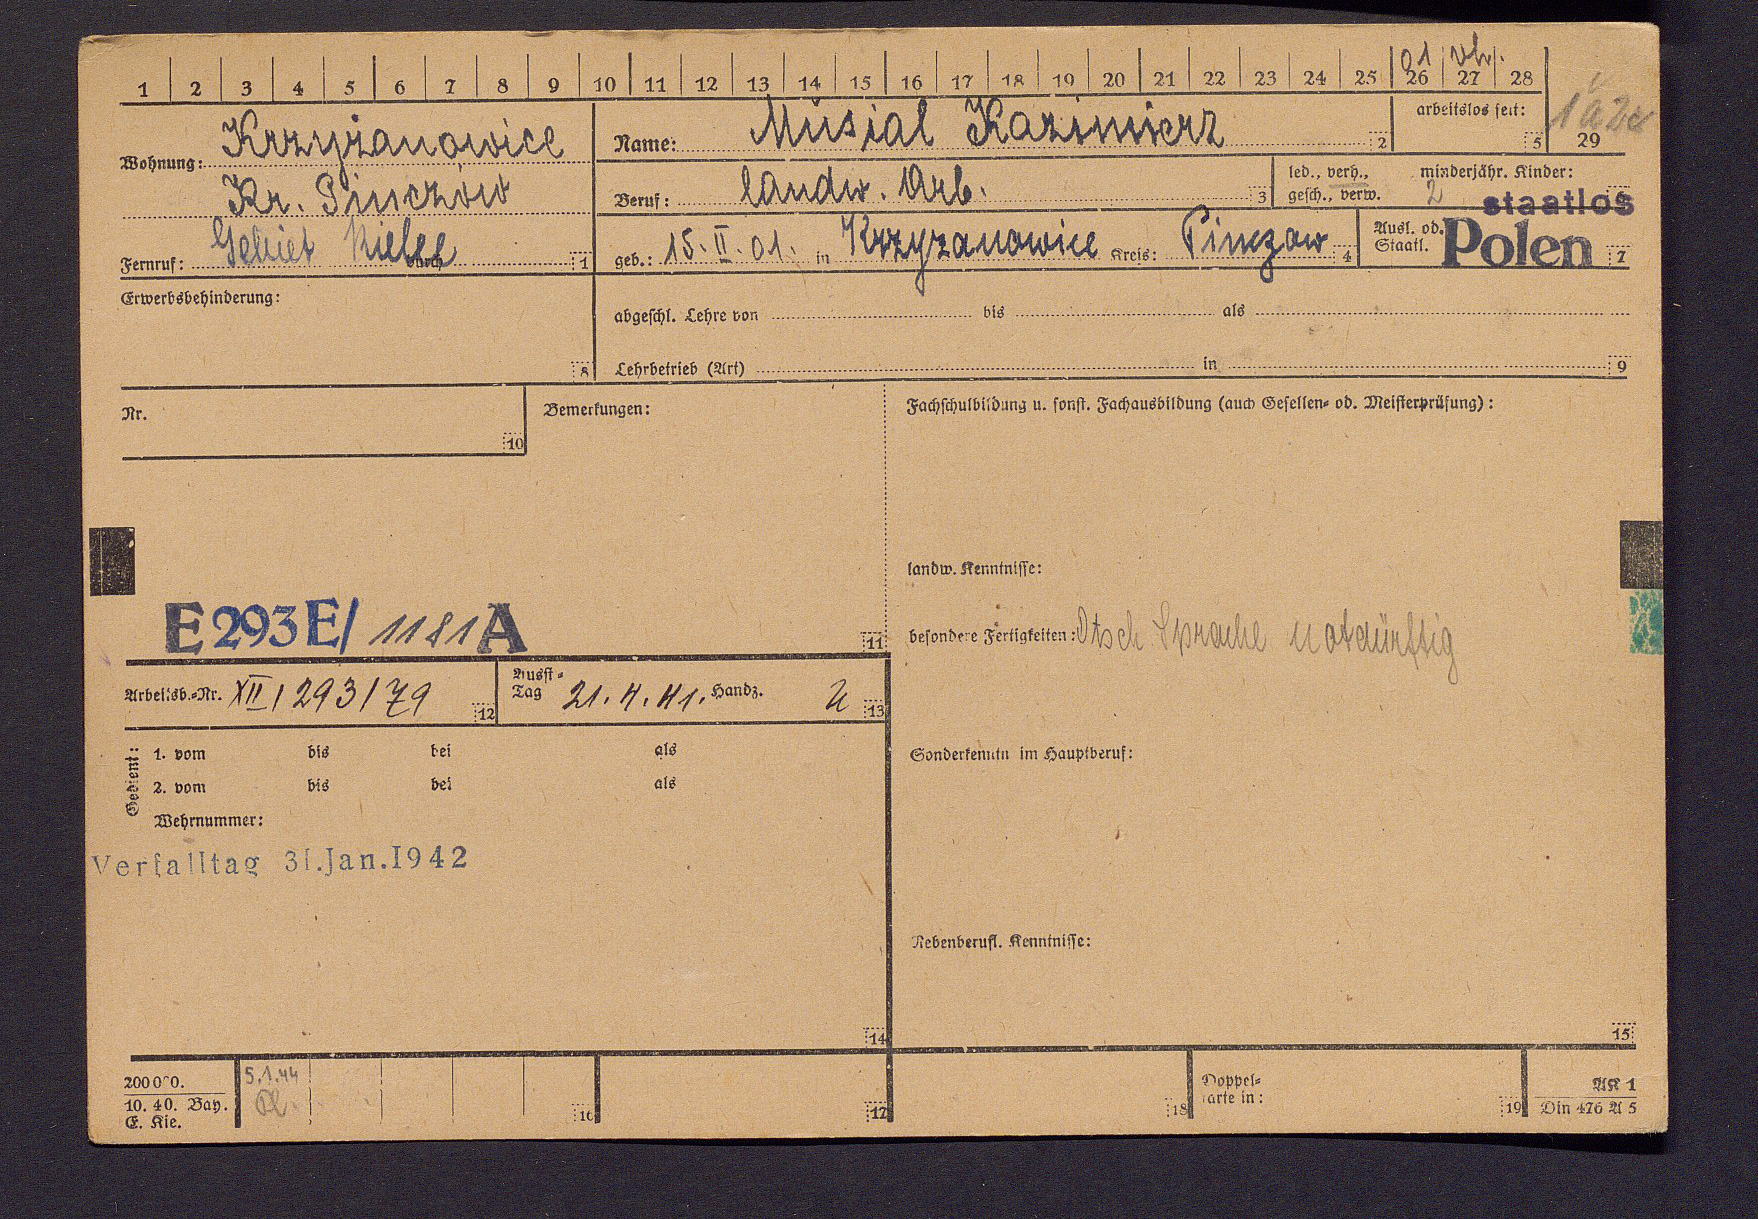 01 vh.
1 2 3 4 5 6 7 8 9 10 11 12 13 14 15 16 17 18 19 20 21 22 23 24 25 26 27 28
29
Wohnung: Krzyżanowice
Kr. Pinczów
Gebiet Kielce
Fernruf: durch 1
Name: Musial Kazimierz 2
arbeitslos seit: 5
Beruf: landw. Arb. 3
led., verh., gesch., verw.
minderjähr. Kinder: 2
staatlos
geb.: 15. II. 01. in Krzyzanowice Kreis: Pinczow 4
Ausl. od. Staatl. Polen 7
Erwerbsbehinderung: 8
abgeschl. Lehre von bis als
Lehrbetrieb (Art) in 9
Nr. 10
Bemerkungen:
Fachschulbildung u. sonst. Fachausbildung (auch Gesellen- od. Meisterprüfung):
landw. Kenntnisse:
E 293 E/ 1181 A 11
besondere Fertigkeiten: Dtsch Sprache notdürftig
Arbeitsb.-Nr. XII/293/79 12
Ausst-Tag 21. 4. 41. Handz. 13
Gedient:
1. vom bis bei als
2. vom bis bei als
Wehrnummer:
Sonderkenntn im Hauptberuf:
Verfalltag 31.Jan.1942
Nebenberufl. Kenntnisse:
14
15
200000.
10. 40. Bay.
E. Kie.
5.1.44
16
17
18
Doppelkarte in: 19
AK 1
Din 476 A 5